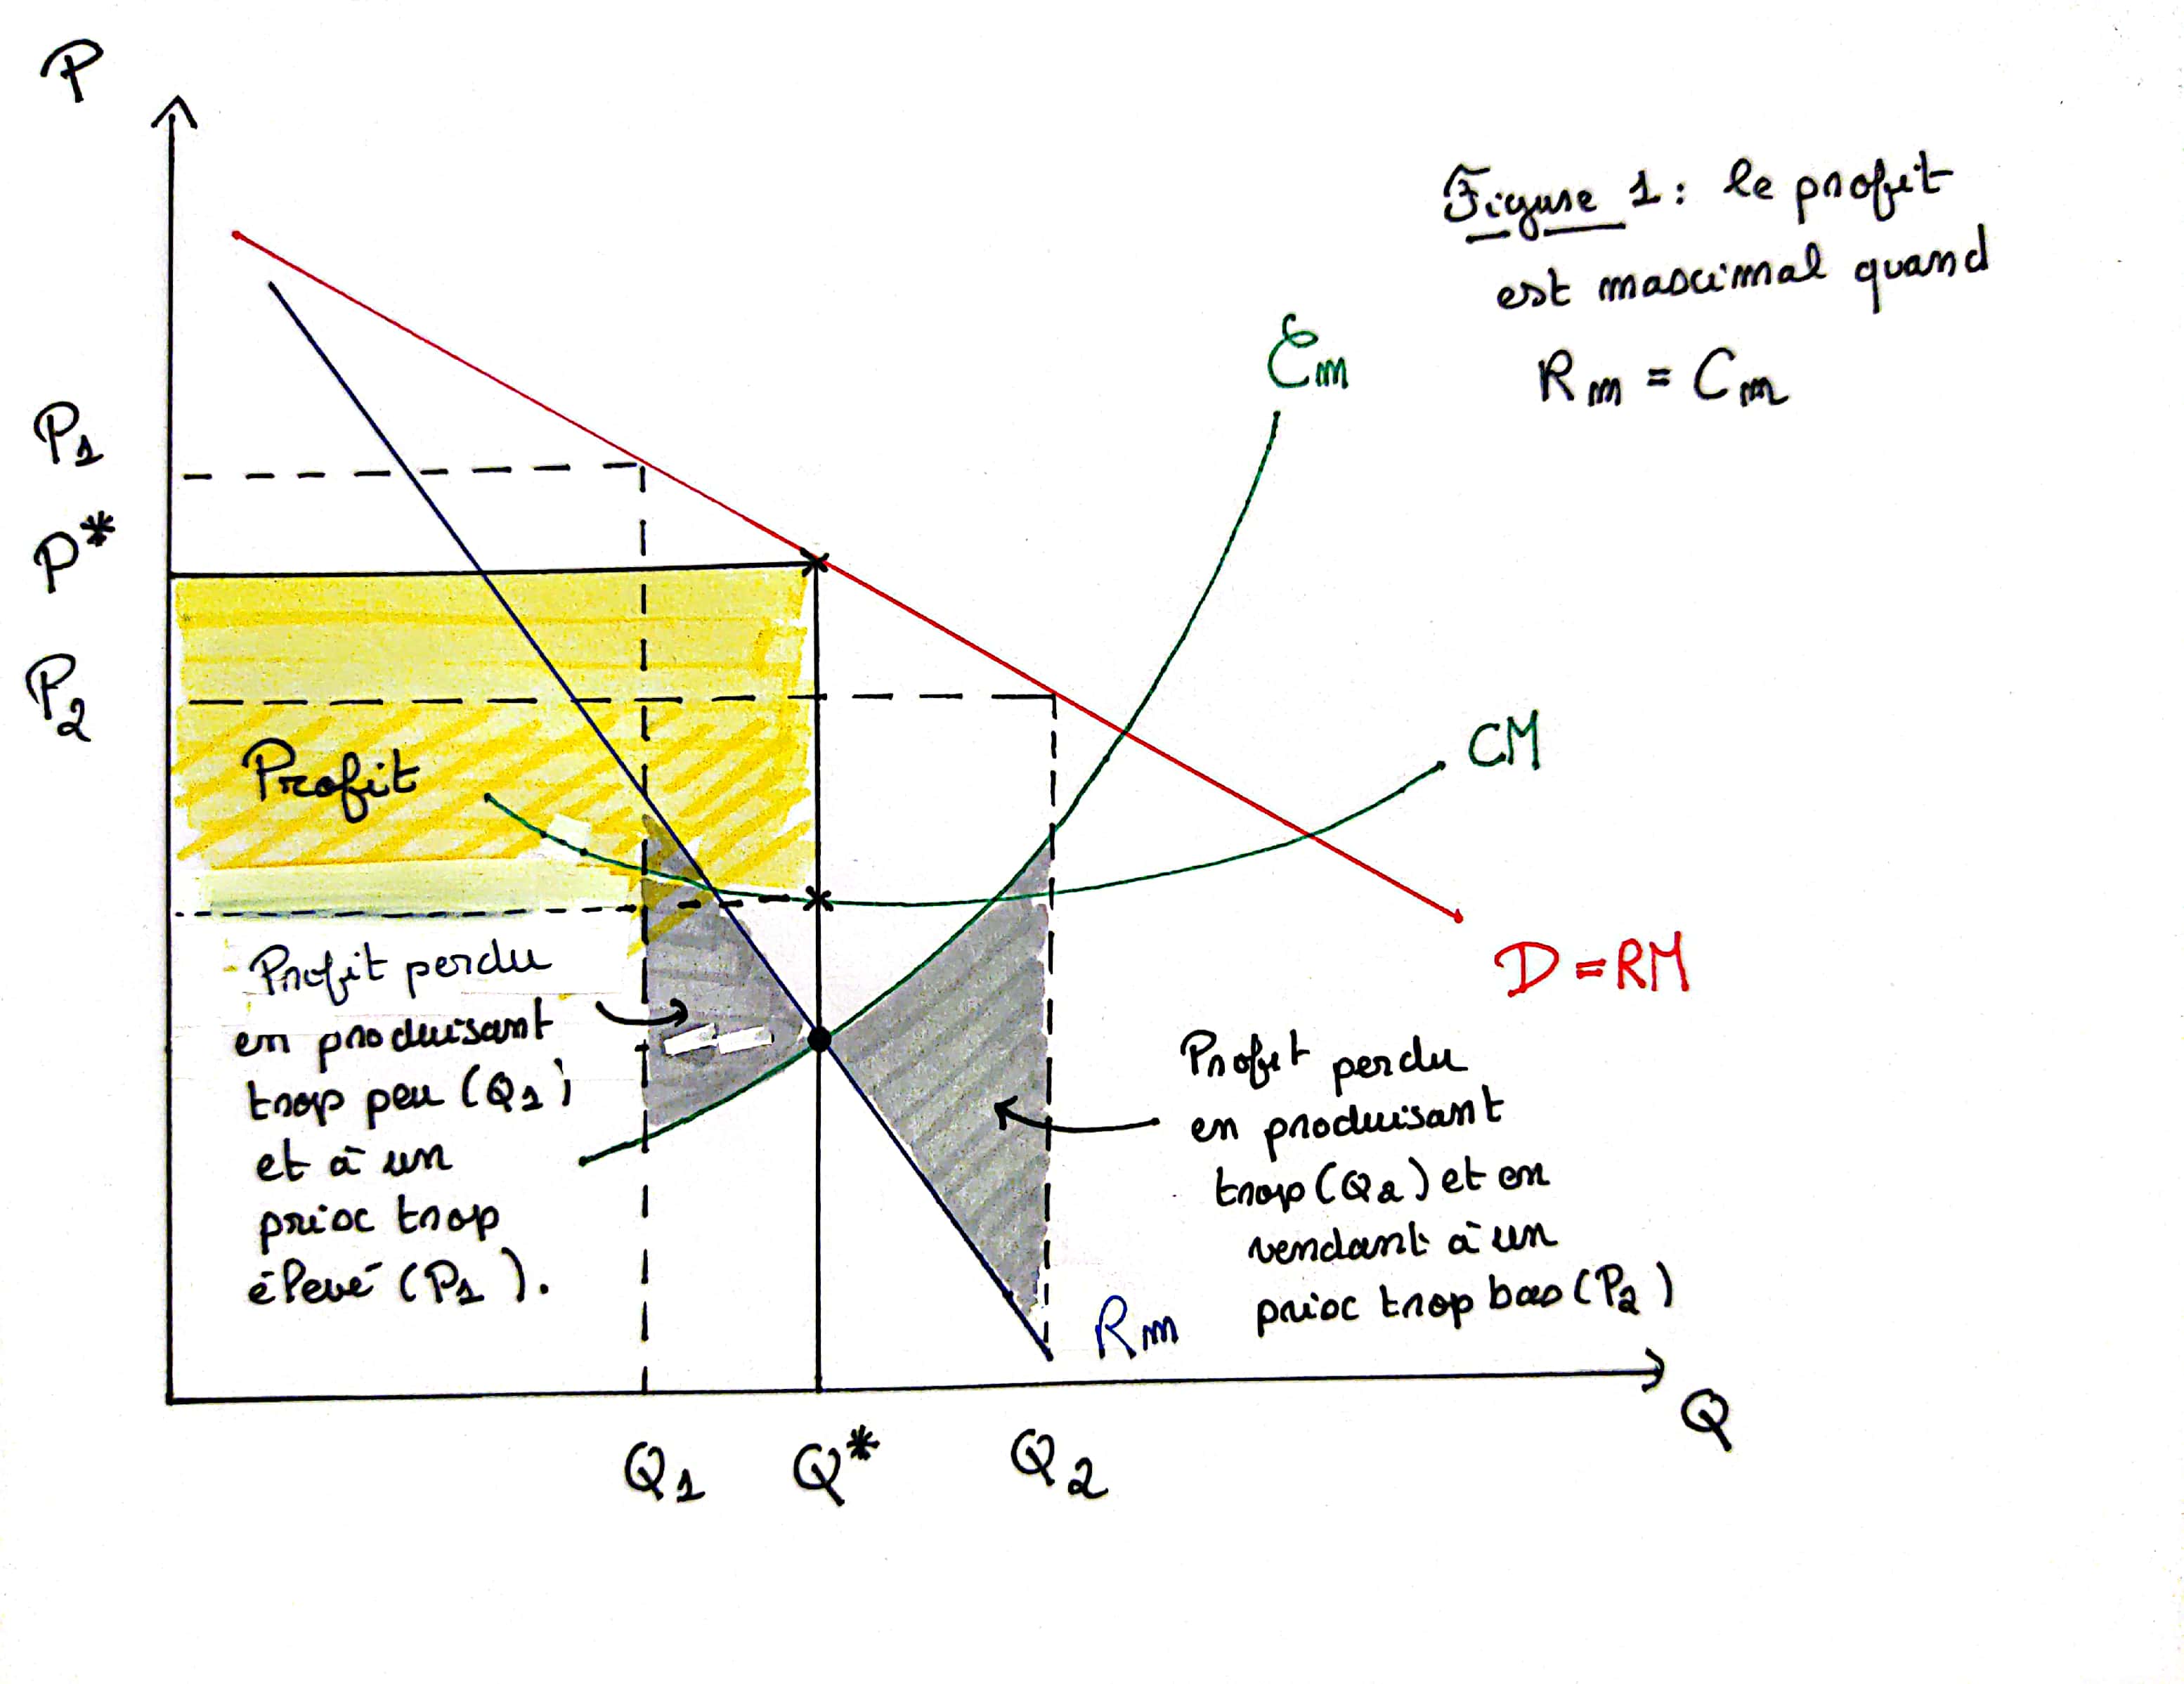 P
Figure 1 : le profit
est maximal quand
Rm = Cm
Cm
P1
P*
P2
Profit
CM
D = RM
Profit perdu
en produisant
trop peu (Q1)
et à un
prix trop
élevé (P1).
Profit perdu
en produisant
trop (Q2) et en
vendant à un
prix trop bas (P2)
Rm
Q
Q1
Q*
Q2